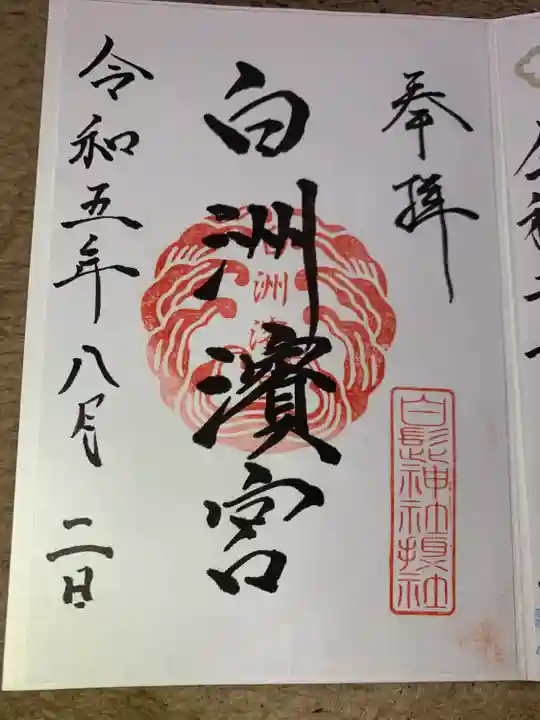 奉拝
白髭神社摂社
白洲濱宮
洲濱
令和五年八月二日